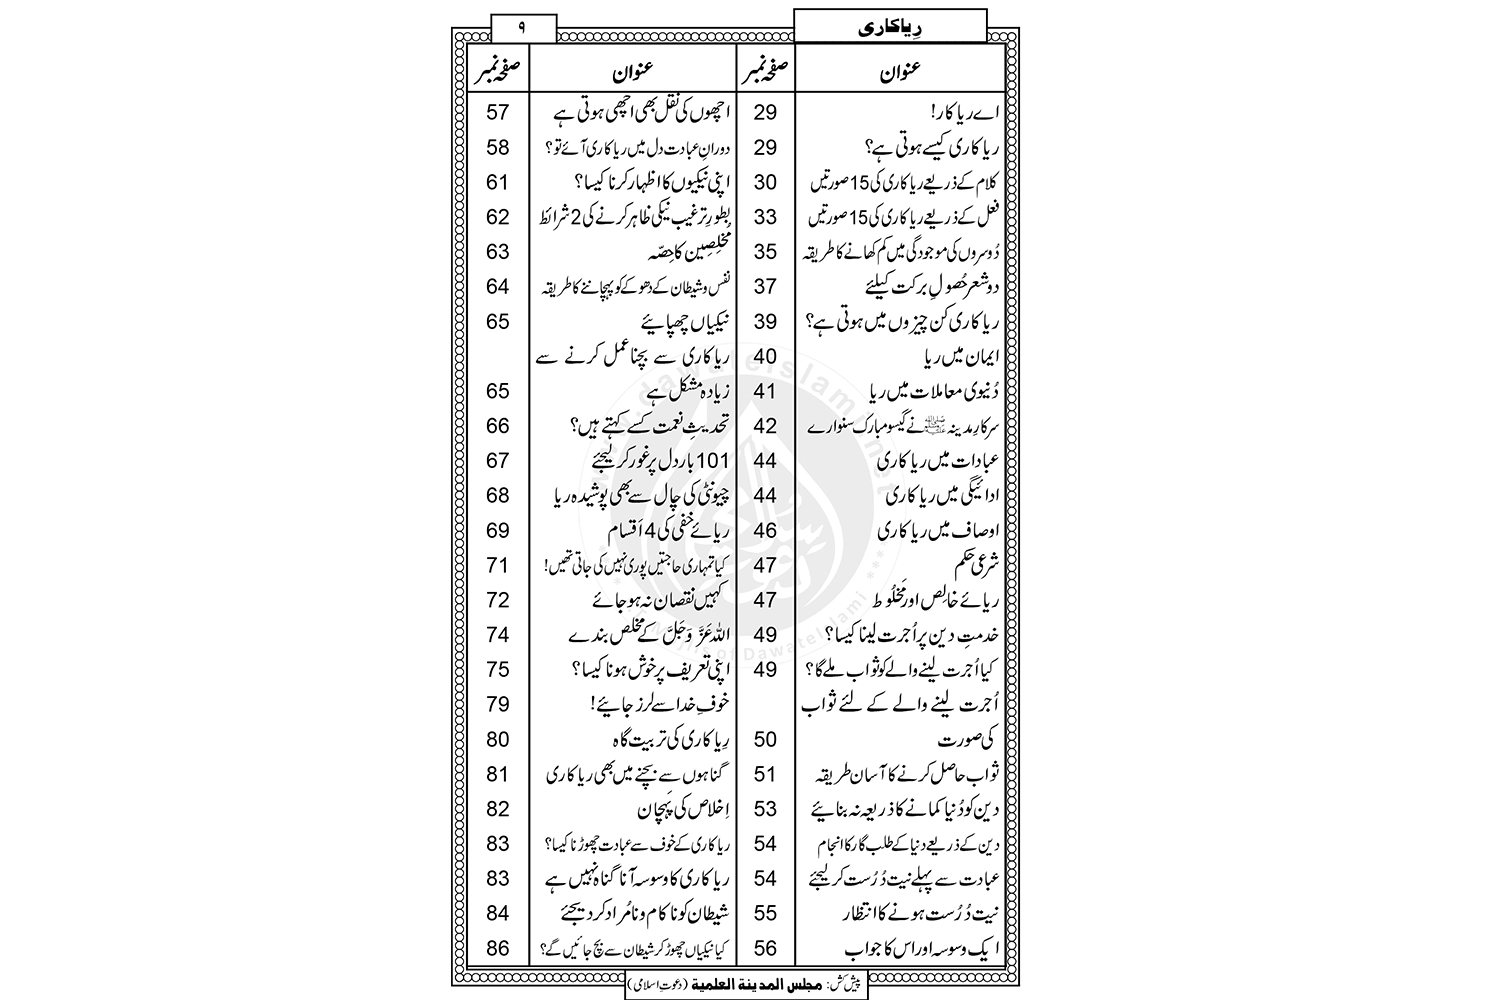 رِیاکاری
۹
عنوان صفحہ نمبر
اے ریاکار! 29
ریاکاری کیسے ہوتی ہے؟ 29
کلام کے ذریعے ریاکاری کی 15 صورتیں 30
فعل کے ذریعے ریاکاری کی 15 صورتیں 33
دُوسروں کی موجودگی میں کم کھانے کا طریقہ 35
دو شعر حُصولِ برکت کیلئے 37
ریاکاری کن چیزوں میں ہوتی ہے؟ 39
ایمان میں ریا 40
دُنیوی معاملات میں ریا 41
سرکارِ مدینہ ﷺ نے گیسو مبارک سنوارے 42
عبادات میں ریاکاری 44
ادائیگی میں ریاکاری 44
اوصاف میں ریاکاری 46
شرعی حکم 47
ریائے خالِص اور مَخلُوط 47
خدمتِ دین پر اُجرت لینا کیسا؟ 49
کیا اُجرت لینے والے کو ثواب ملے گا؟ 49
اُجرت لینے والے کے لئے ثواب
کی صورت 50
ثواب حاصل کرنے کا آسان طریقہ 51
دین کو دُنیا کمانے کا ذریعہ نہ بنائیے 53
دین کے ذریعے دنیا کے طلب گار کا انجام 54
عبادت سے پہلے نیت دُرُست کر لیجئے 54
نیت دُرُست ہونے کا انتظار 55
ایک وسوسہ اور اس کا جواب 56
عنوان صفحہ نمبر
اچھوں کی نقل بھی اچھی ہوتی ہے 57
دورانِ عبادت دل میں ریاکاری آئے تو؟ 58
اپنی نیکیوں کا اظہار کرنا کیسا؟ 61
بطورِ ترغیب نیکی ظاہر کرنے کی 2 شرائط 62
مُخلِصِین کا حِصّہ 63
نفس و شیطان کے دھوکے کو پہچاننے کا طریقہ 64
نیکیاں چھپائیے 65
ریاکاری سے بچنا عمل کرنے سے
زیادہ مشکل ہے 65
تحدیثِ نعمت کسے کہتے ہیں؟ 66
101 بار دل پر غور کر لیجئے 67
چیونٹی کی چال سے بھی پوشیدہ ریا 68
ریائے خفی کی 4 اَقسام 69
کیا تمہاری حاجتیں پوری نہیں کی جاتی تھیں! 71
کہیں نقصان نہ ہو جائے 72
اللہ عَزَّ وَجَلَّ کے مخلص بندے 74
اپنی تعریف پر خوش ہونا کیسا؟ 75
خوفِ خدا سے لرز جائیے! 79
رِیاکاری کی تربیت گاہ 80
گناہوں سے بچنے میں بھی ریاکاری 81
اِخلاص کی پَہچان 82
ریاکاری کے خوف سے عبادت چھوڑنا کیسا؟ 83
ریاکاری کا وسوسہ آنا گناہ نہیں ہے 83
شیطان کو ناکام و نامُراد کر دیجئے 84
کیا نیکیاں چھوڑ کر شیطان سے بچ جائیں گے؟ 86
www.dawateislami.net
Majlis of DawateIslami
پیش کش: مجلس المدینۃ العلمیۃ (دعوتِ اسلامی)